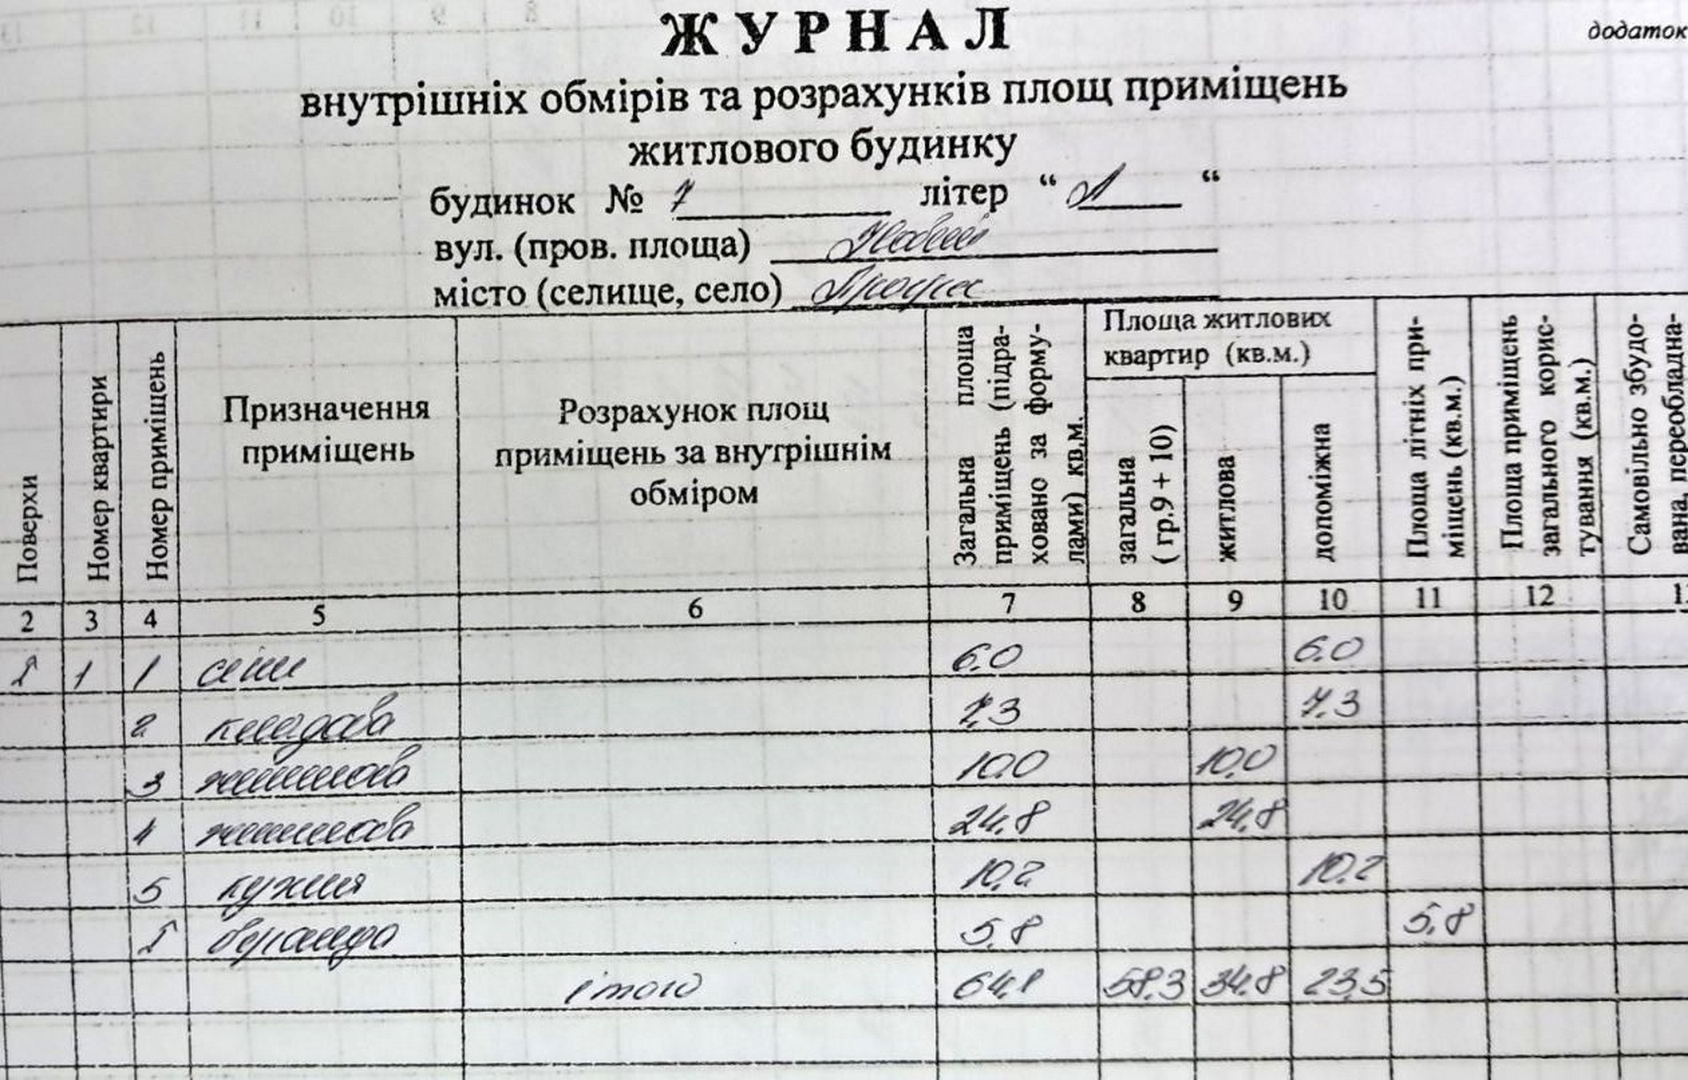 додаток
ЖУРНАЛ
внутрішніх обмірів та розрахунків площ приміщень
житлового будинку
будинок № 7 літер “ А “
вул. (пров. площа)
місто (селище, село) Прогрес
Поверхи
Номер квартири
Номер приміщень
Призначення приміщень
Розрахунок площ приміщень за внутрішнім обміром
Загальна площа приміщень (підраховано за формулами) кв.м.
Площа житлових квартир (кв.м.)
загальна ( гр.9 + 10)
житлова
допоміжна
Площа літніх приміщень (кв.м.)
Площа приміщень загального користування (кв.м.)
Самовільно збудована, переобладна-
2 3 4 5 6 7 8 9 10 11 12
І 1 1 сіни 6.0 6.0
2 кладова 7.3 7.3
3 житлова 10.0 10.0
4 житлова 24.8 24.8
5 кухня 10.2 10.2
І веранда 5.8 5.8
ітого 64.1 58.3 34.8 23.5